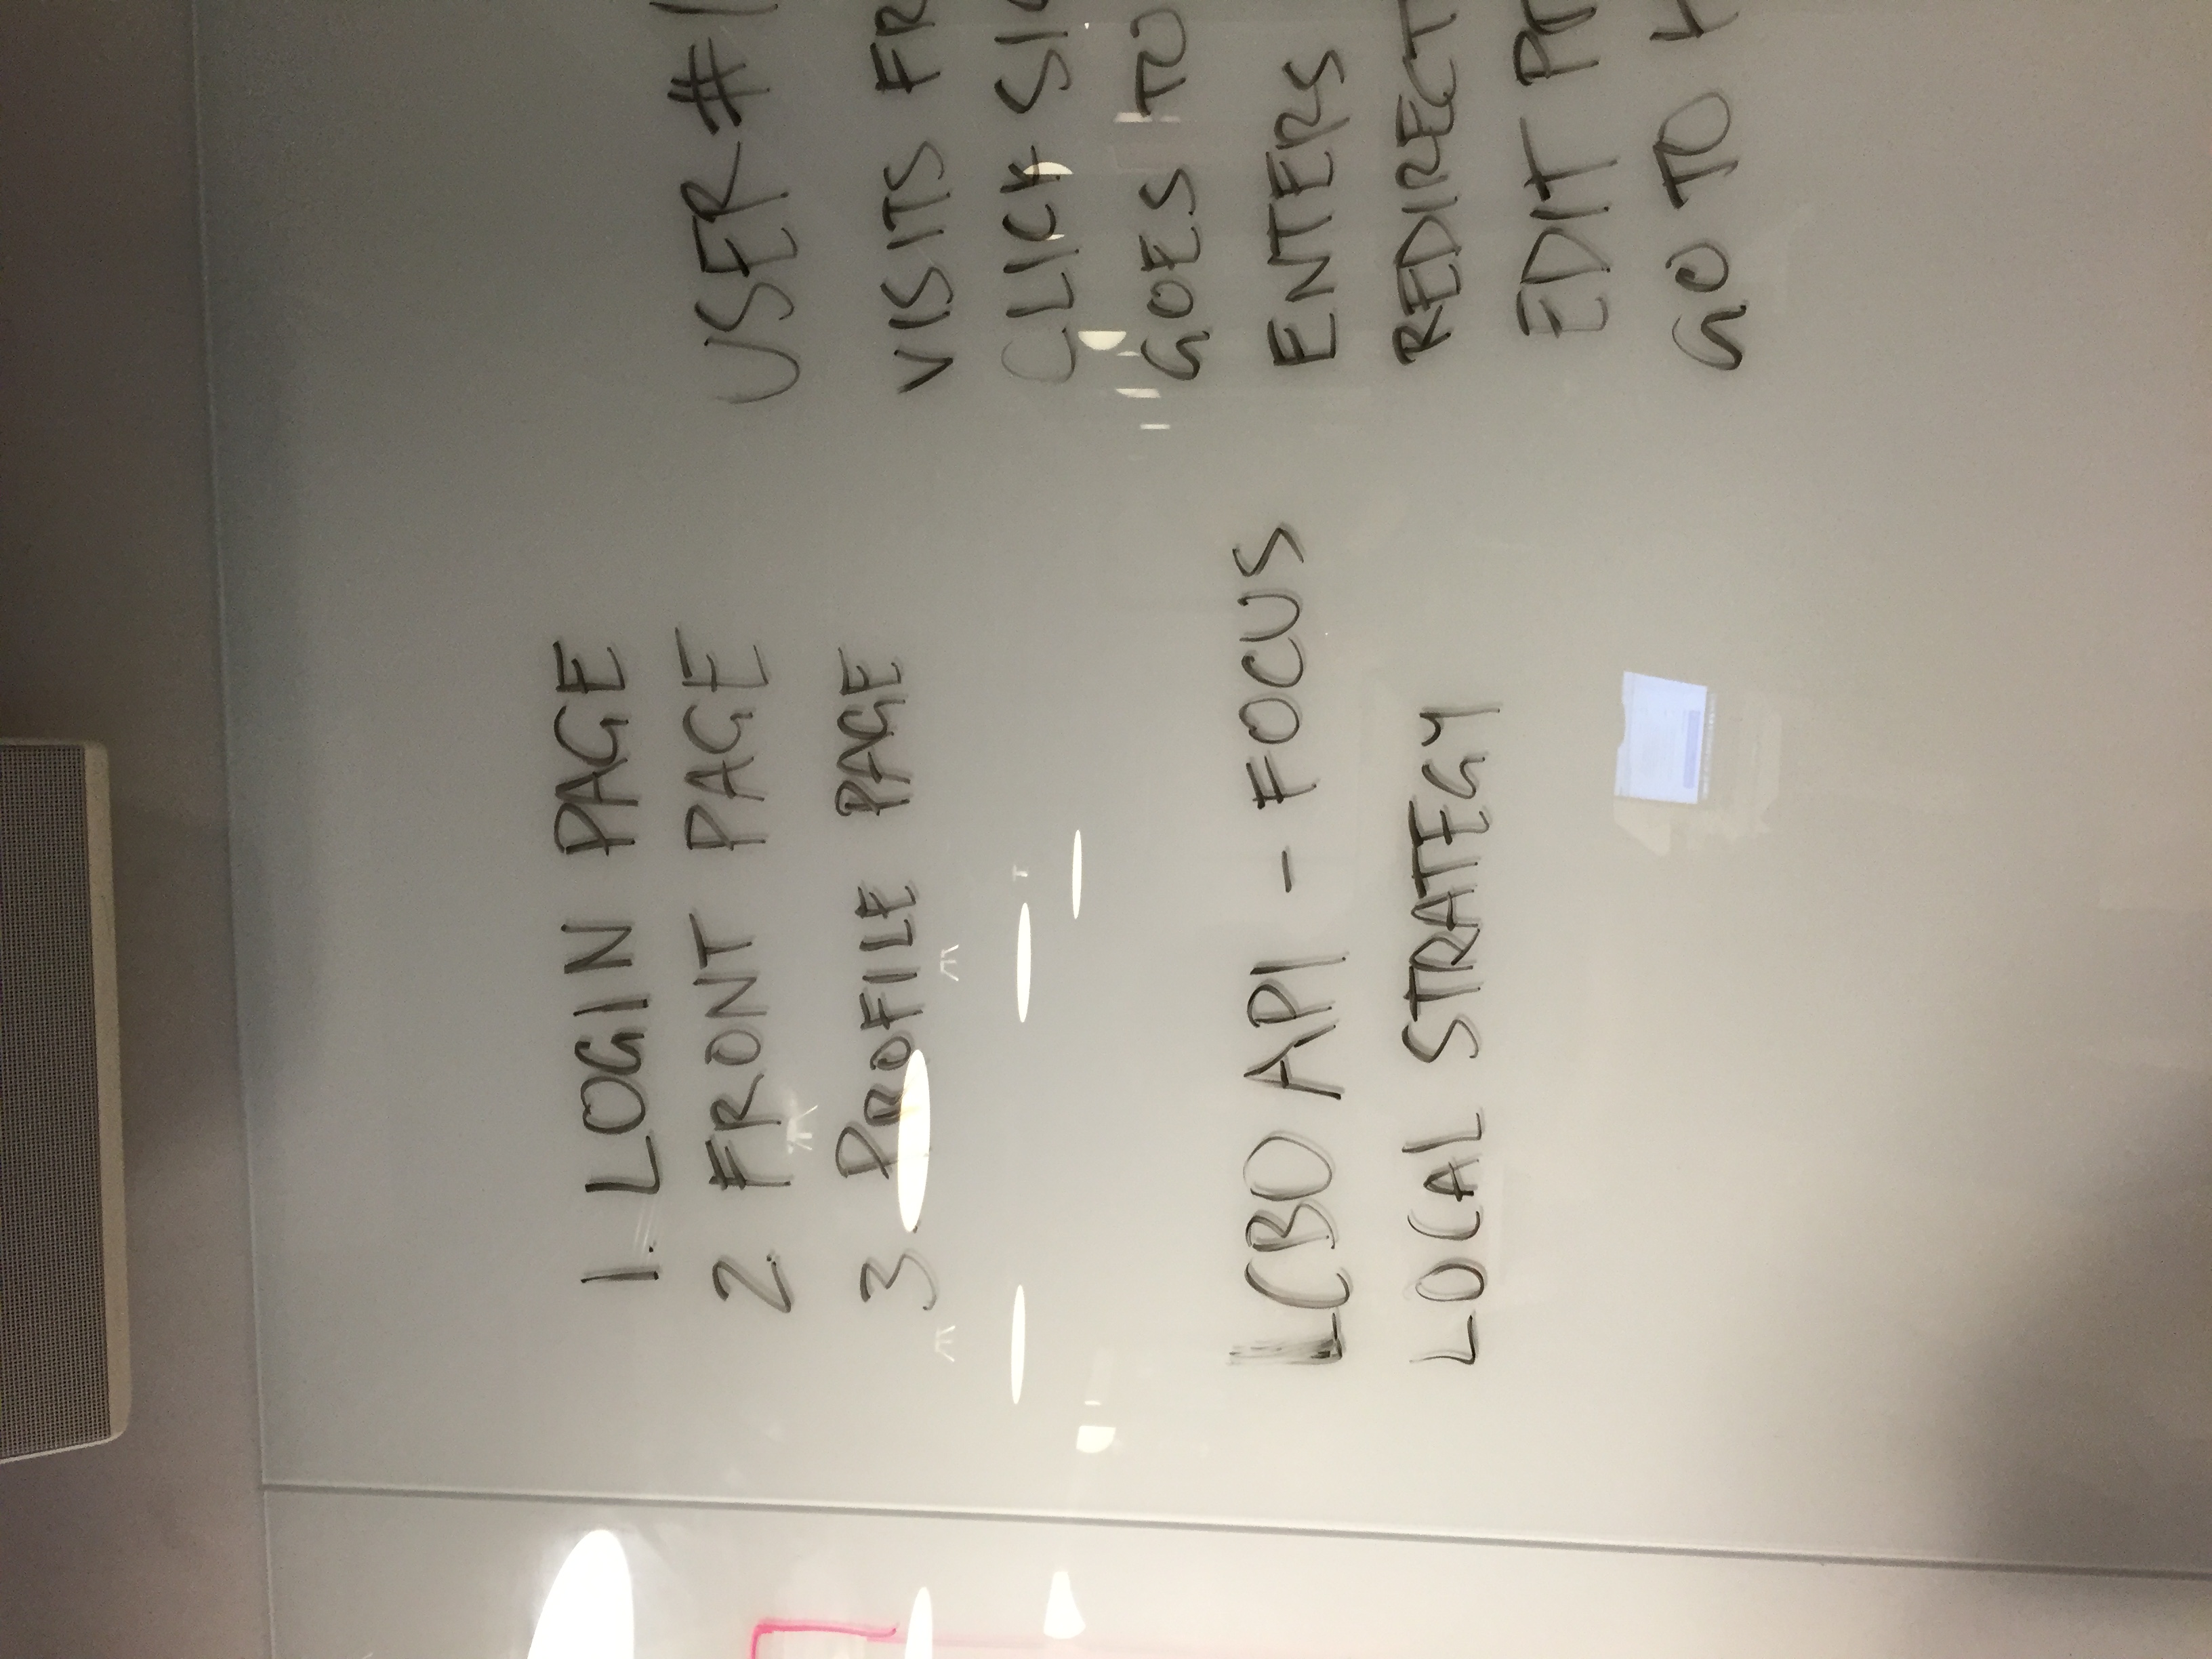 1. LOGIN PAGE
2. FRONT PAGE
3. PROFILE PAGE
LCBO API - FOCUS
LOCAL STRATEGY
USER #1
VISITS
CLICK
GOES TO
ENTERS
REDIRECT
EDIT
GO TO